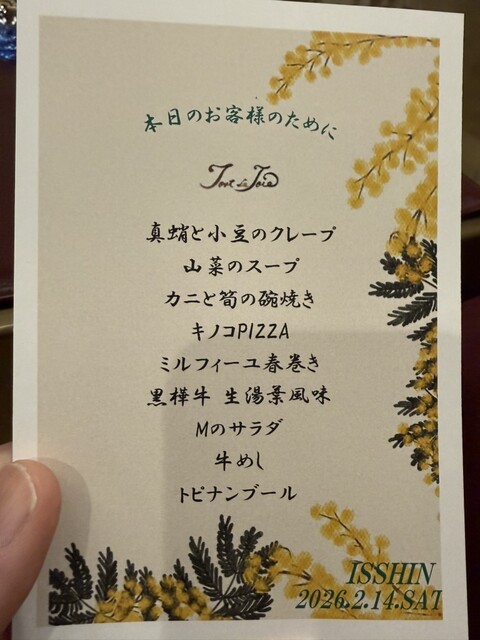 本日のお客様のために
Tort de Joie
真蛸と小豆のクレープ
山菜のスープ
カニと筍の碗焼き
キノコPIZZA
ミルフィーユ春巻き
黒樺牛 生湯葉風味
Mのサラダ
牛めし
トピナンブール
ISSHIN
2026.2.14.SAT